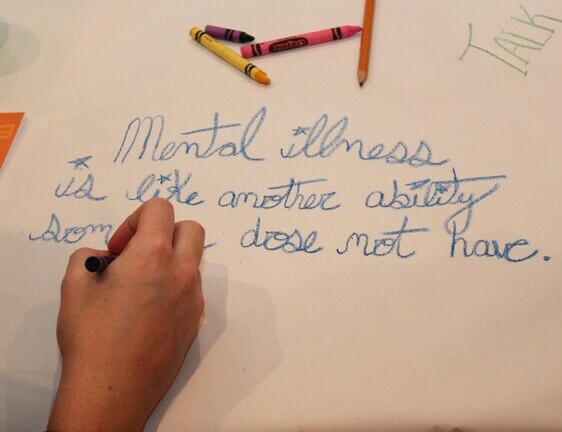 TALK
Mental illness
is like another ability
som dose not have.